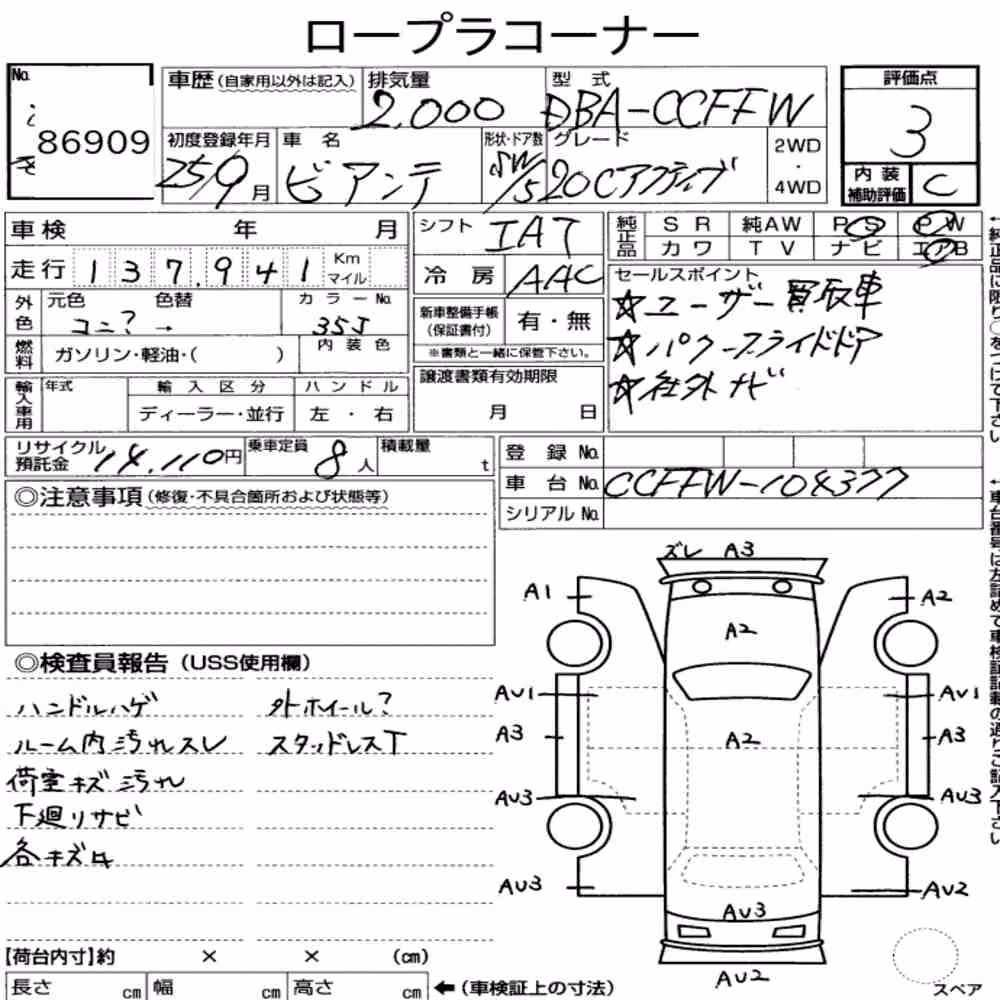 ロープラコーナー
No.
86909
車歴 (自家用以外は記入)
排気量
2,000
型 式
DBA-CCFFW
評価点
3
内装補助評価
C
初度登録年月
25/9 月
車 名
ビアンテ
形状・ドア数
SW/5
グレード
20Cアクティブ
2WD
・
4WD
車検 年 月
走行 1 3 7,9 4 1 Km マイル
外色
元色 色替
コニ? →
カラーNo.
35J
燃料
ガソリン・軽油・( )
内装色
輸入車用
年式
輸入区分
ディーラー・並行
ハンドル
左 ・ 右
シフト
IAT
冷房
AAC
新車整備手帳
(保証書付)
有・無
※書類と一緒に保管下さい。
譲渡書類有効期限
月 日
純正品
SR 純AW PS PW
カワ TV ナビ エアB
セールスポイント
☆ユーザー買取車
☆パワースライドドア
☆社外ナビ
←純正品に限り○をつけて下さい
リサイクル預託金 14,110円
乗車定員 8人
積載量 t
登録No.
車台No. CCFFW-104377
シリアルNo.
←車台番号は左詰めで車検証記載の通りご記入下さい
◎注意事項 (修復・不具合箇所および状態等)
◎検査員報告 (USS使用欄)
ハンドルハゲ
ルーム内汚れスレ
荷室キズ汚れ
下廻リサビ
各キズ凹
外ホイール?
スタッドレスT
ズレ A3
A1
A2
A2
AU1
AU1
A3
A2
A3
AU3
AU3
AU3
AU3
AU2
AU2
スペア
【荷台内寸】約 × × (cm)
長さ cm 幅 cm 高さ cm ←(車検証上の寸法)